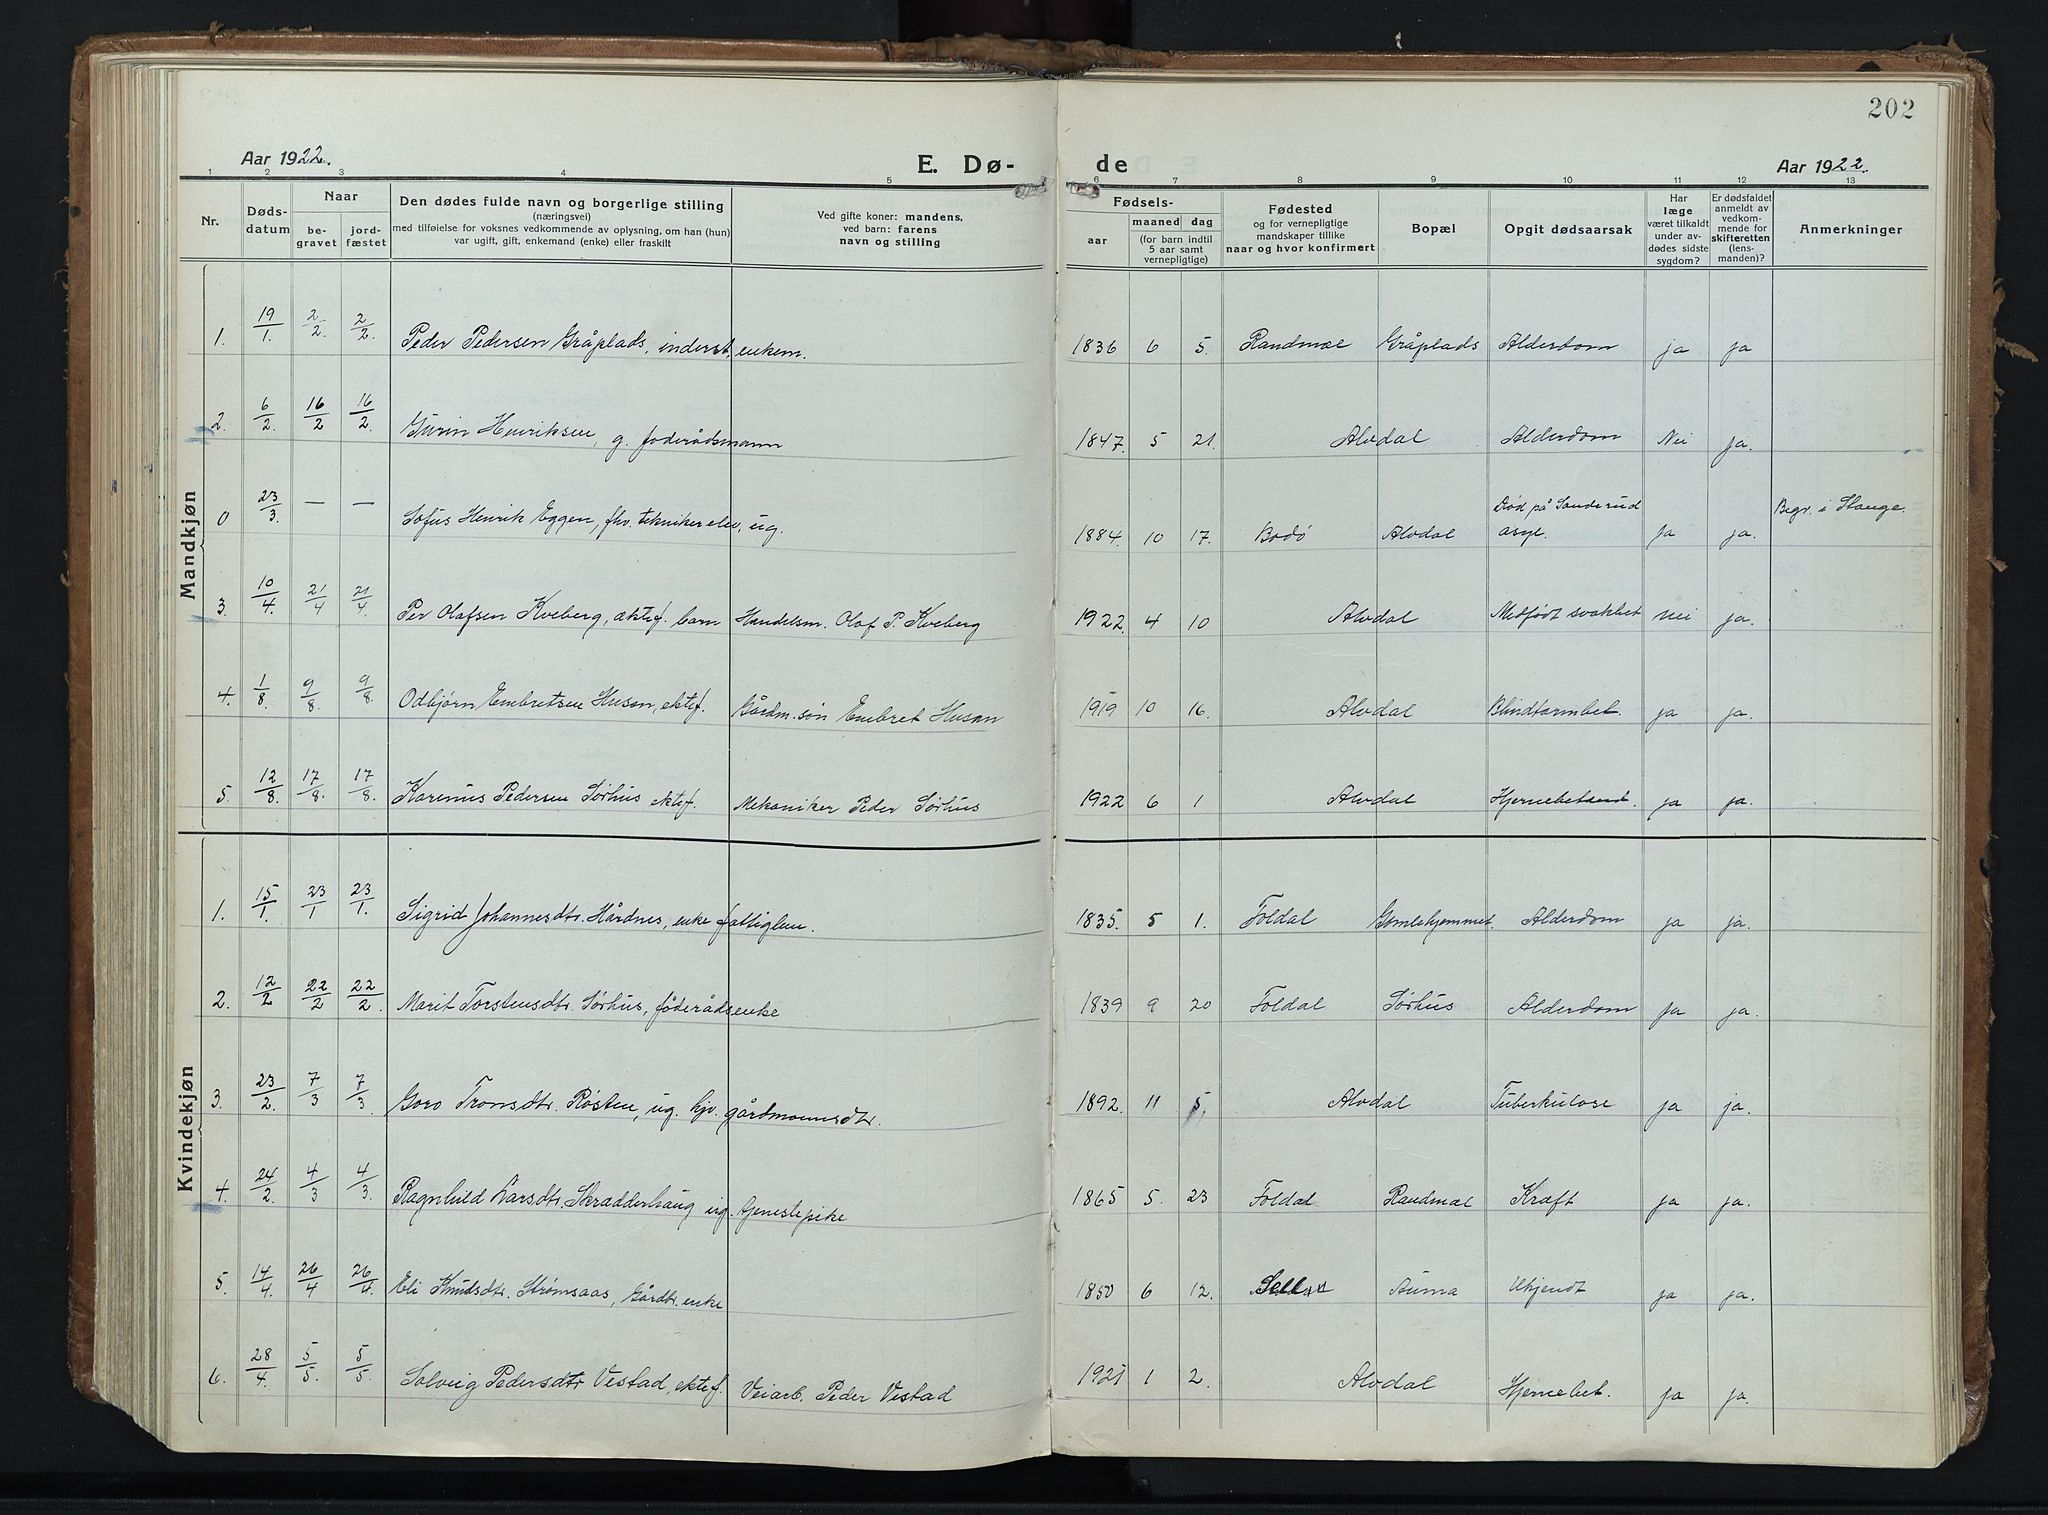 202
Aar 1922. E. Dø- de Aar 1922.
1 2 3 4 5 6 7 8 9 10 11 12 13
Nr.
Døds-
datum
Naar
be-
gravet
jord-
fæstet
Den dødes fulde navn og borgerlige stilling
(næringsvei)
med tilføielse for voksnes vedkommende av oplysning, om han (hun)
var ugift, gift, enkemand (enke) eller fraskilt
Ved gifte koner: mandens,
ved barn: farens
navn og stilling
Fødsels-
aar
maaned dag
(for barn indtil
5 aar samt
vernepligtige)
Fødested
og for vernepligtige
mandskaper tillike
naar og hvor konfirmert
Bopæl
Opgit dødsaarsak
Har
læge
været tilkaldt
under av-
dødes sidste
sygdom?
Er dødsfaldet
anmeldt av
vedkom-
mende for
skifteretten
(lens-
manden)?
Anmerkninger
Mandkjøn
1. 19/1. 2/2. 2/2. Peder Pedersen Gråplads, inderst, enkem. 1836 6 5. Randmæl Gråplads Alderdom ja ja
2. 6/2. 16/2 16/2. Gurin Henriksen, g. foderådsmann 1847. 5 21. Alvdal Alderdom Nei ja.
0 23/3. — — Sofus Henrik Eggen, fhv. teknikerelev, ug. 1884. 10 17. Bodø Alvdal Død på Sanderud asyl. Ja ja. Begr. i Stange.
3. 10/4. 21/4 21/4. Per Olafsen Kveberg, ektef. barn Handelsm. Olaf P. Kveberg 1922. 4 10 Alvdal Medfødt svakhet nei ja.
4. 1/8. 9/8. 9/8. Odbjørn Embretsen Husan, ektef. Gårdm.søn Embret Husan 1919 10 16. Alvdal Blindtarmbet. ja ja.
5. 12/8. 17/8. 17/8. Karenus Pedersen Sørhus ektef. Mekaniker Peder Sørhus 1922 6 1 Alvdal Hjernebetend. ja ja.
Kvindekjøn
1. 15/1. 23/1 23/1. Sigrid Johannesdtr. Hårdnes, enke fattiglem. 1835. 5 1. Foldal Gamlehjemmet. Alderdom ja ja.
2. 12/2 22/2 22/2. Marit Torstensdtr. Sørhus, føderådsenke 1839 9 20 Foldal Sørhus Alderdom ja ja.
3. 23/2. 7/3 7/3. Goro Tronsdtr. Røsten, ug. hjv. gårdmannsdtr. 1892. 11 5. Alvdal Tuberkulose ja ja.
4. 24/2. 4/3 4/3. Ragnhild Larsdtr. Skradderhaug ug. tjenestepike 1865 5. 23 Foldal Randmæl Kræft ja ja.
5. 14/4. 26/4 26/4. Eli Knudsdtr. Strømsaas, Gårdbr. enke 1850 6 12. Auma Ukjendt ja ja.
6. 28/4. 5/5. 5/5. Solveig Pedersdtr Vestad, ektef. Veiarb. Peder Vestad 1921 1 2. Alvdal Hjernebet. ja ja.